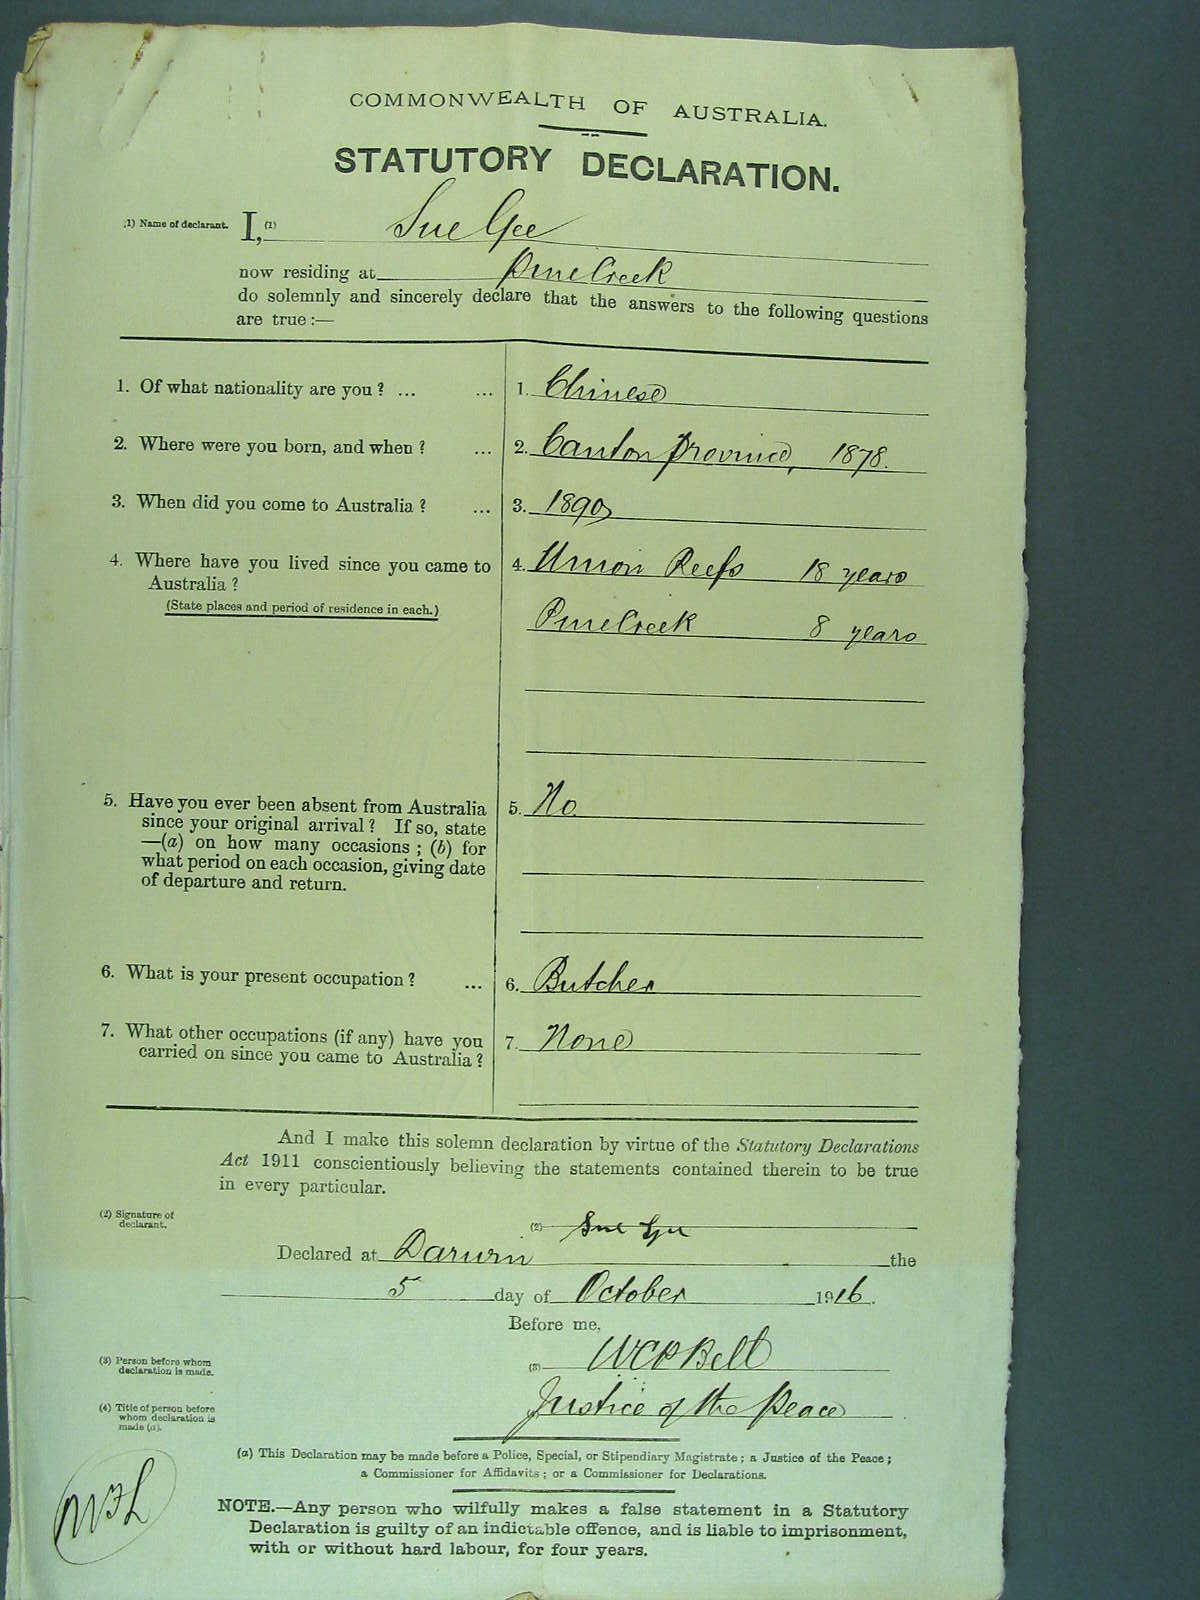 COMMONWEALTH OF AUSTRALIA.
STATUTORY DECLARATION.
(1) Name of declarant. I, (1) Sue Gee
now residing at Pine Creek
do solemnly and sincerely declare that the answers to the following questions
are true :—
1. Of what nationality are you ? ... ... 1. Chinese
2. Where were you born, and when ? ... 2. Canton Province, 1878.
3. When did you come to Australia ? ... 3. 1890
4. Where have you lived since you came to 4. Union Reefs 18 years
Australia ?
(State places and period of residence in each.)
Pine Creek 8 years
5. Have you ever been absent from Australia 5. No.
since your original arrival ? If so, state
—(a) on how many occasions ; (b) for
what period on each occasion, giving date
of departure and return.
6. What is your present occupation ? ... 6. Butcher
7. What other occupations (if any) have you 7. None
carried on since you came to Australia ?
And I make this solemn declaration by virtue of the Statutory Declarations
Act 1911 conscientiously believing the statements contained therein to be true
in every particular.
(2) Signature of
declarant.
(2) Sue Gee
Declared at Darwin the
5 day of October 1916.
Before me,
(3) Person before whom
declaration is made.
(3) WCP Bell
(4) Title of person before
whom declaration is
made (a).
Justice of the Peace
(a) This Declaration may be made before a Police, Special, or Stipendiary Magistrate ; a Justice of the Peace ;
a Commissioner for Affidavits ; or a Commissioner for Declarations.
NOTE.—Any person who wilfully makes a false statement in a Statutory
Declaration is guilty of an indictable offence, and is liable to imprisonment,
with or without hard labour, for four years.